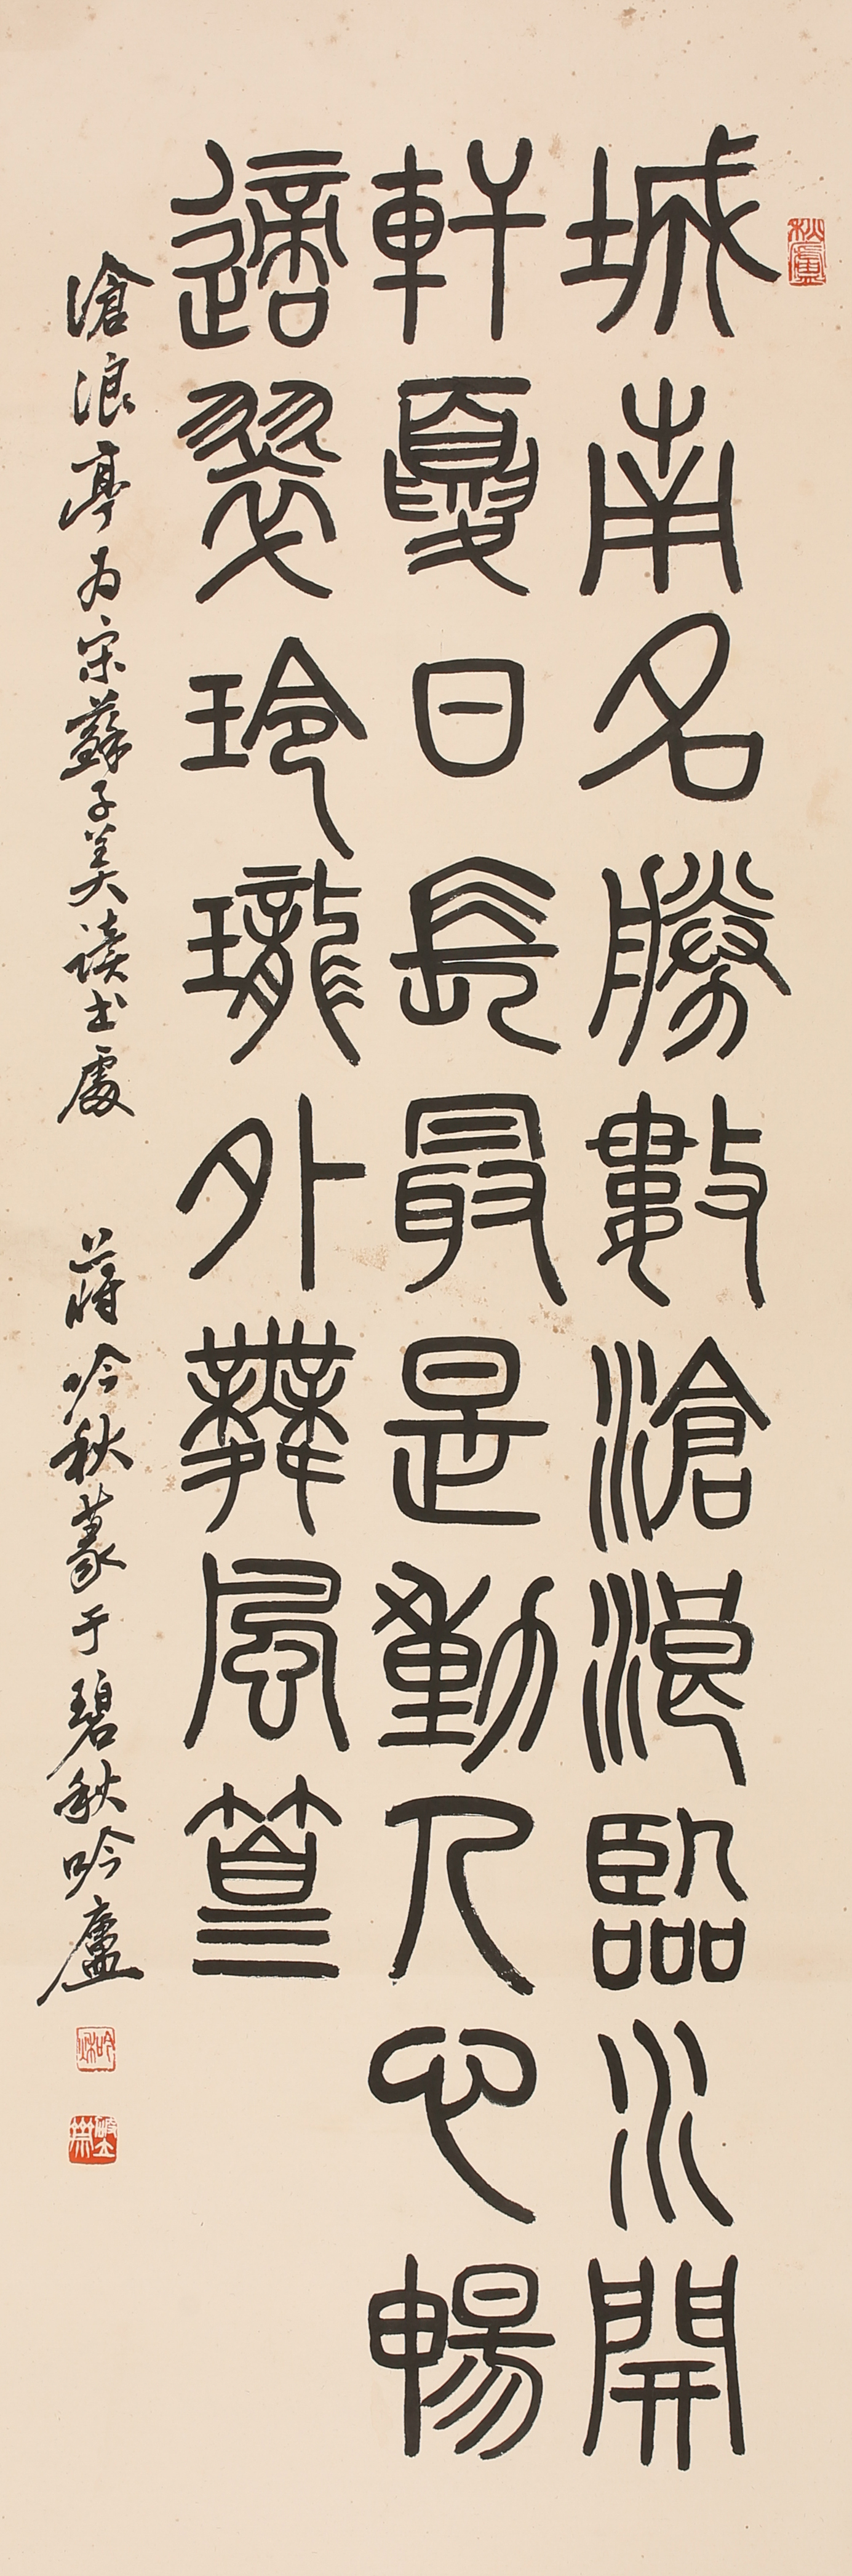 秋廬
城南名勝數滄浪臨水開
軒夏日長最是動人心暢
適翠玲瓏外舞風篁
滄浪亭為宋蘇子美讀書處 蔣吟秋篆于碧秋吟廬
吟秋